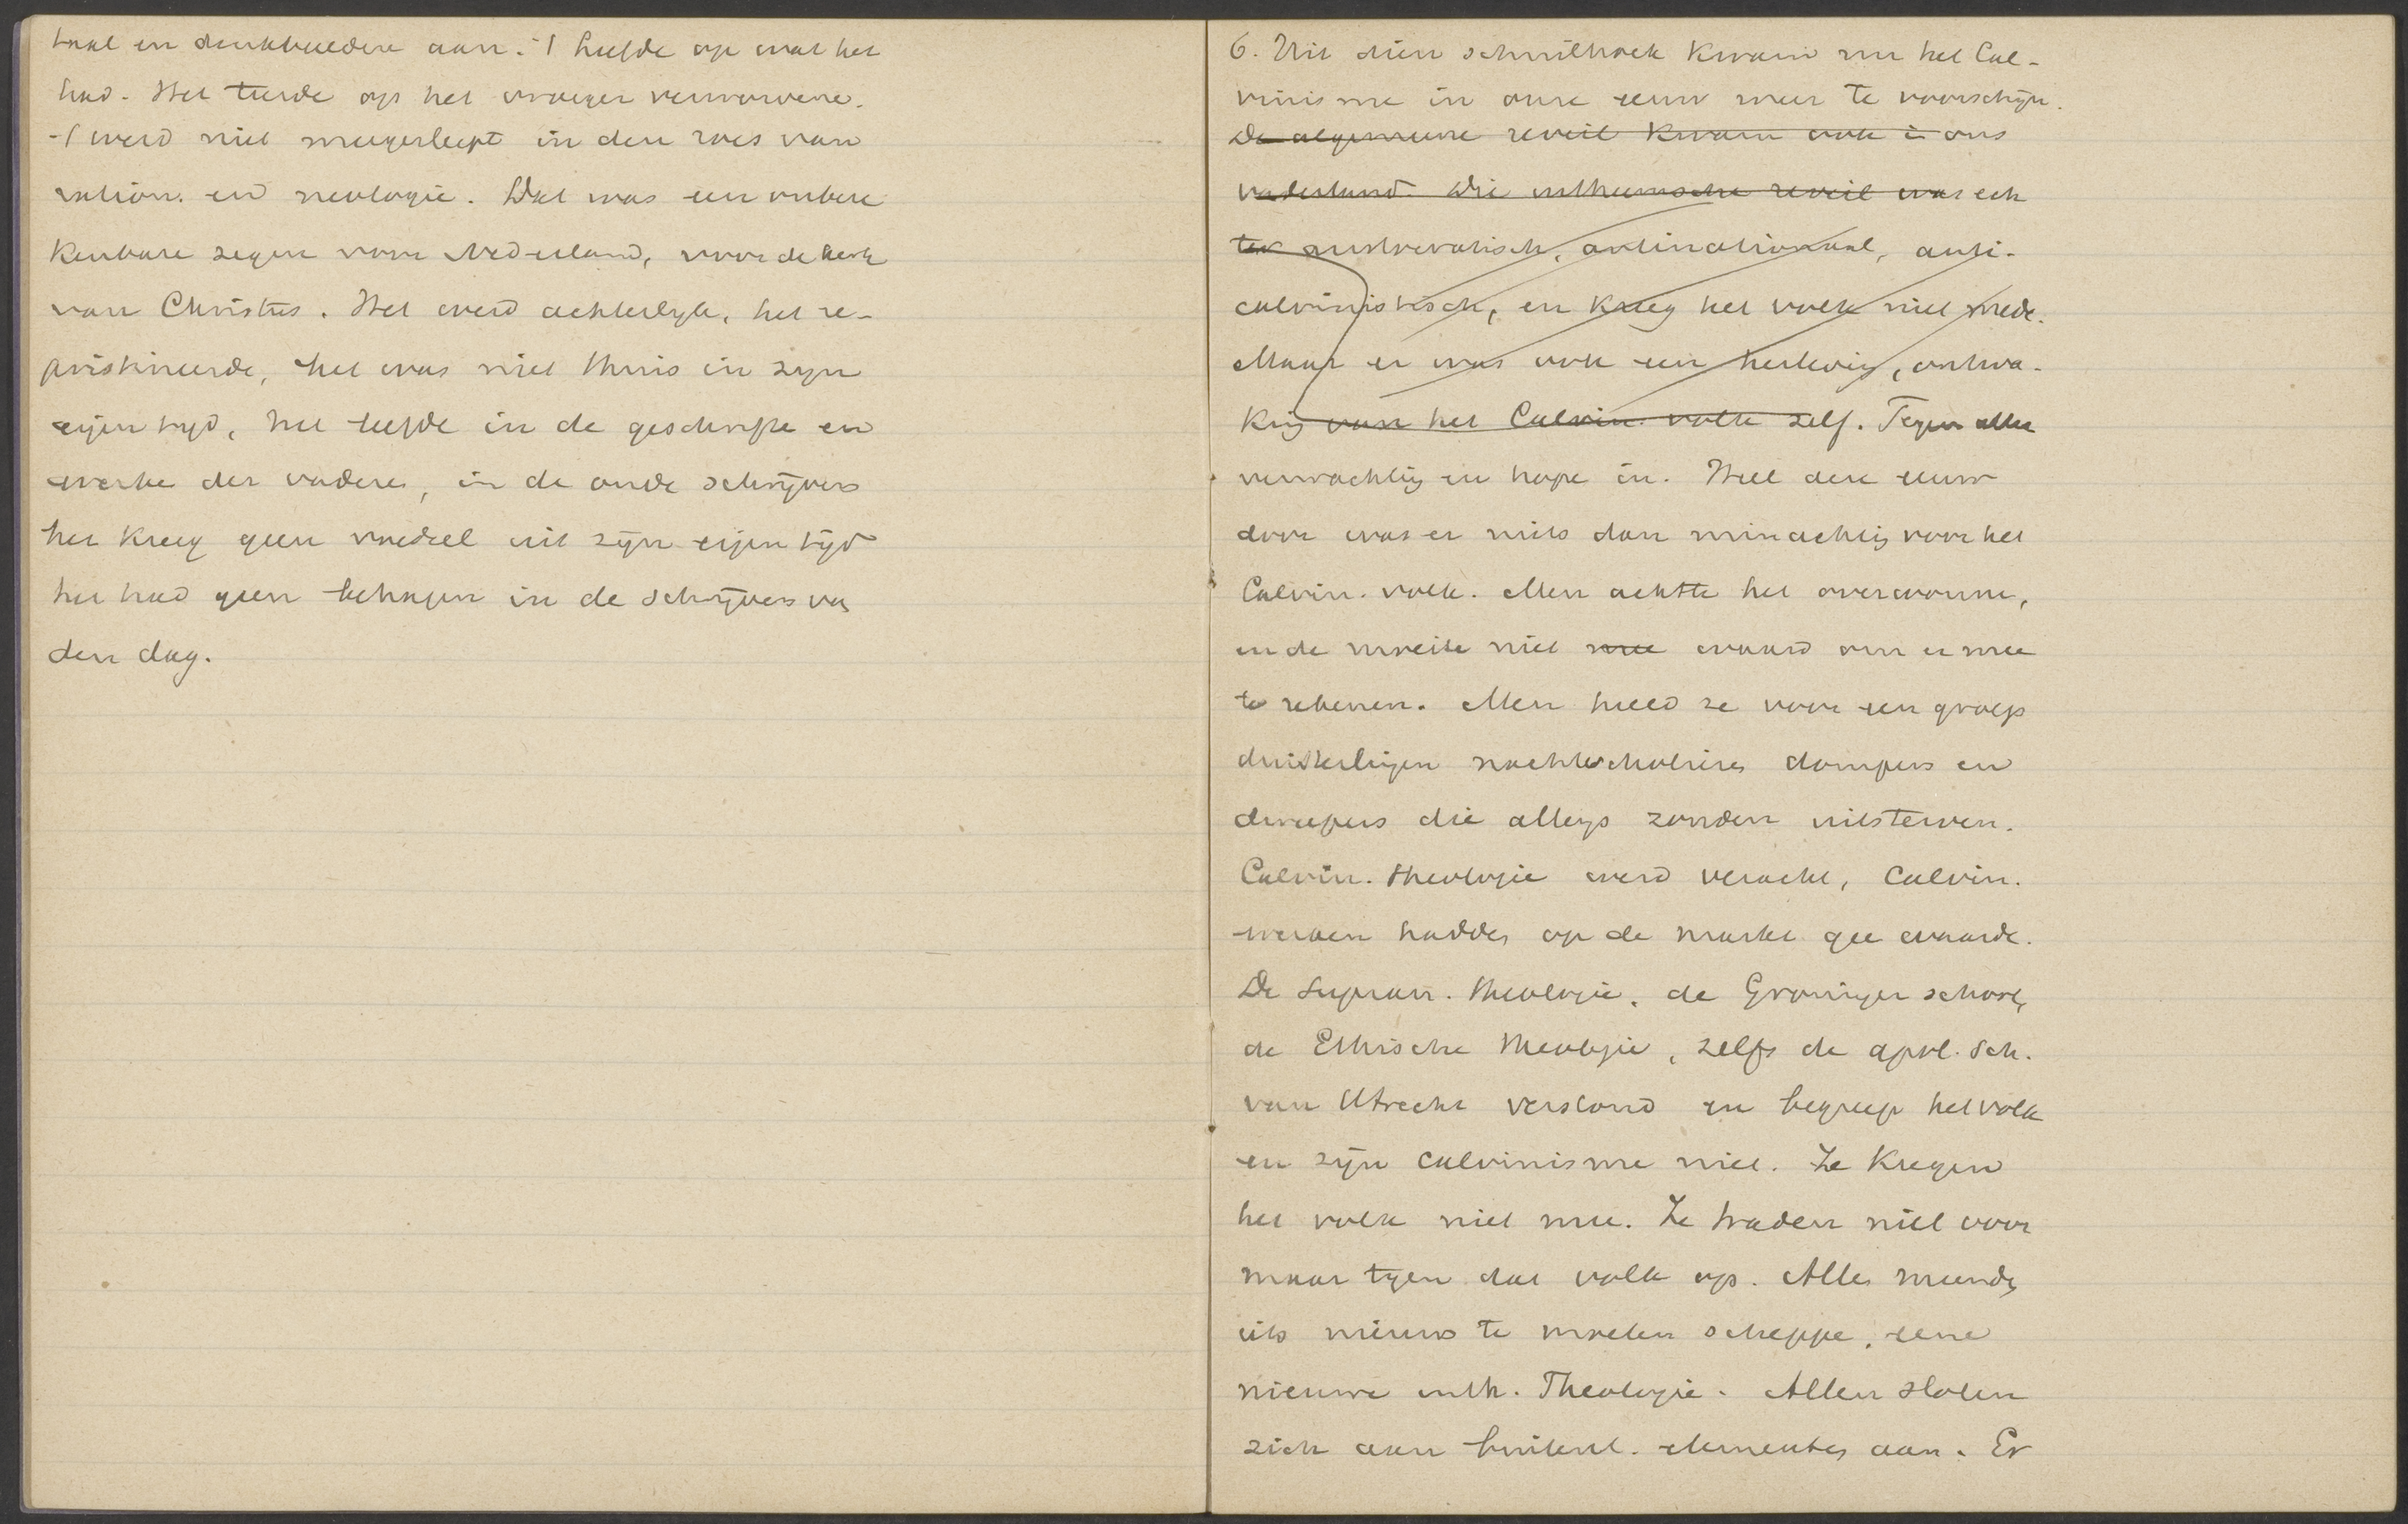 taal en denkbeelden aan. 't leefde op wat het
had. Het teerde op het vroeger verworvene.
't werd niet meegesleept in den roes van
ration. en neologie. Dat was een onbere
kenbare zegen voor Nederland, voor de kerk
van Christus. Het werd achterlyk, het re-
pristineerde, het was niet thuis in zyn
eigen tyd, het leefde in de geschrifte en
werke der vaderen, in de oude schrijvers
het kreeg geen voedsel uit zijn eigen tijd
het had geen behagen in de schrijvers van
den dag.
6. Uit dien schuilhoek kwam nu het Cal-
vinisme in onze eeuw weer te voorschijn.
De algemeene reveil kwam ook in ons
vaderland. Die inheemsche reveil was ech
ter aristocratisch, antinationaal, anti-
calvinistisch, en kreeg het volk niet mede.
Maar er was ook een herleving, ontwa-
king van het Calvin. volk zelf. Tegen alle
verwachting en hope in. Heel deze eeuw
door was er niets dan minachting voor het
Calvin. volk. Men achtte het overwonne,
en de moeite niet mee waard om er mee
te rekenen. Men hield ze voor een groep
duisterlingen nachtscholieres dompers en
dweepers die allengs zouden uitsterven.
Calvin. theologie werd veracht, Calvin.
werken hadden op de markt gee waarde.
De Supran. theologie, de Groninger school,
de Ethische theologie, zelfs de apol. sch.
van Utrecht verstond en begreep het volk
en zijn calvinisme niet. Ze kregen
het volk niet mee. Ze traden niet voor
maar tegen dat volk op. Alle meenden
iets nieuws te moeten scheppe, eene
nieuwe Theologie. Allen sloten
zich aan buitenl. elementen aan. Er